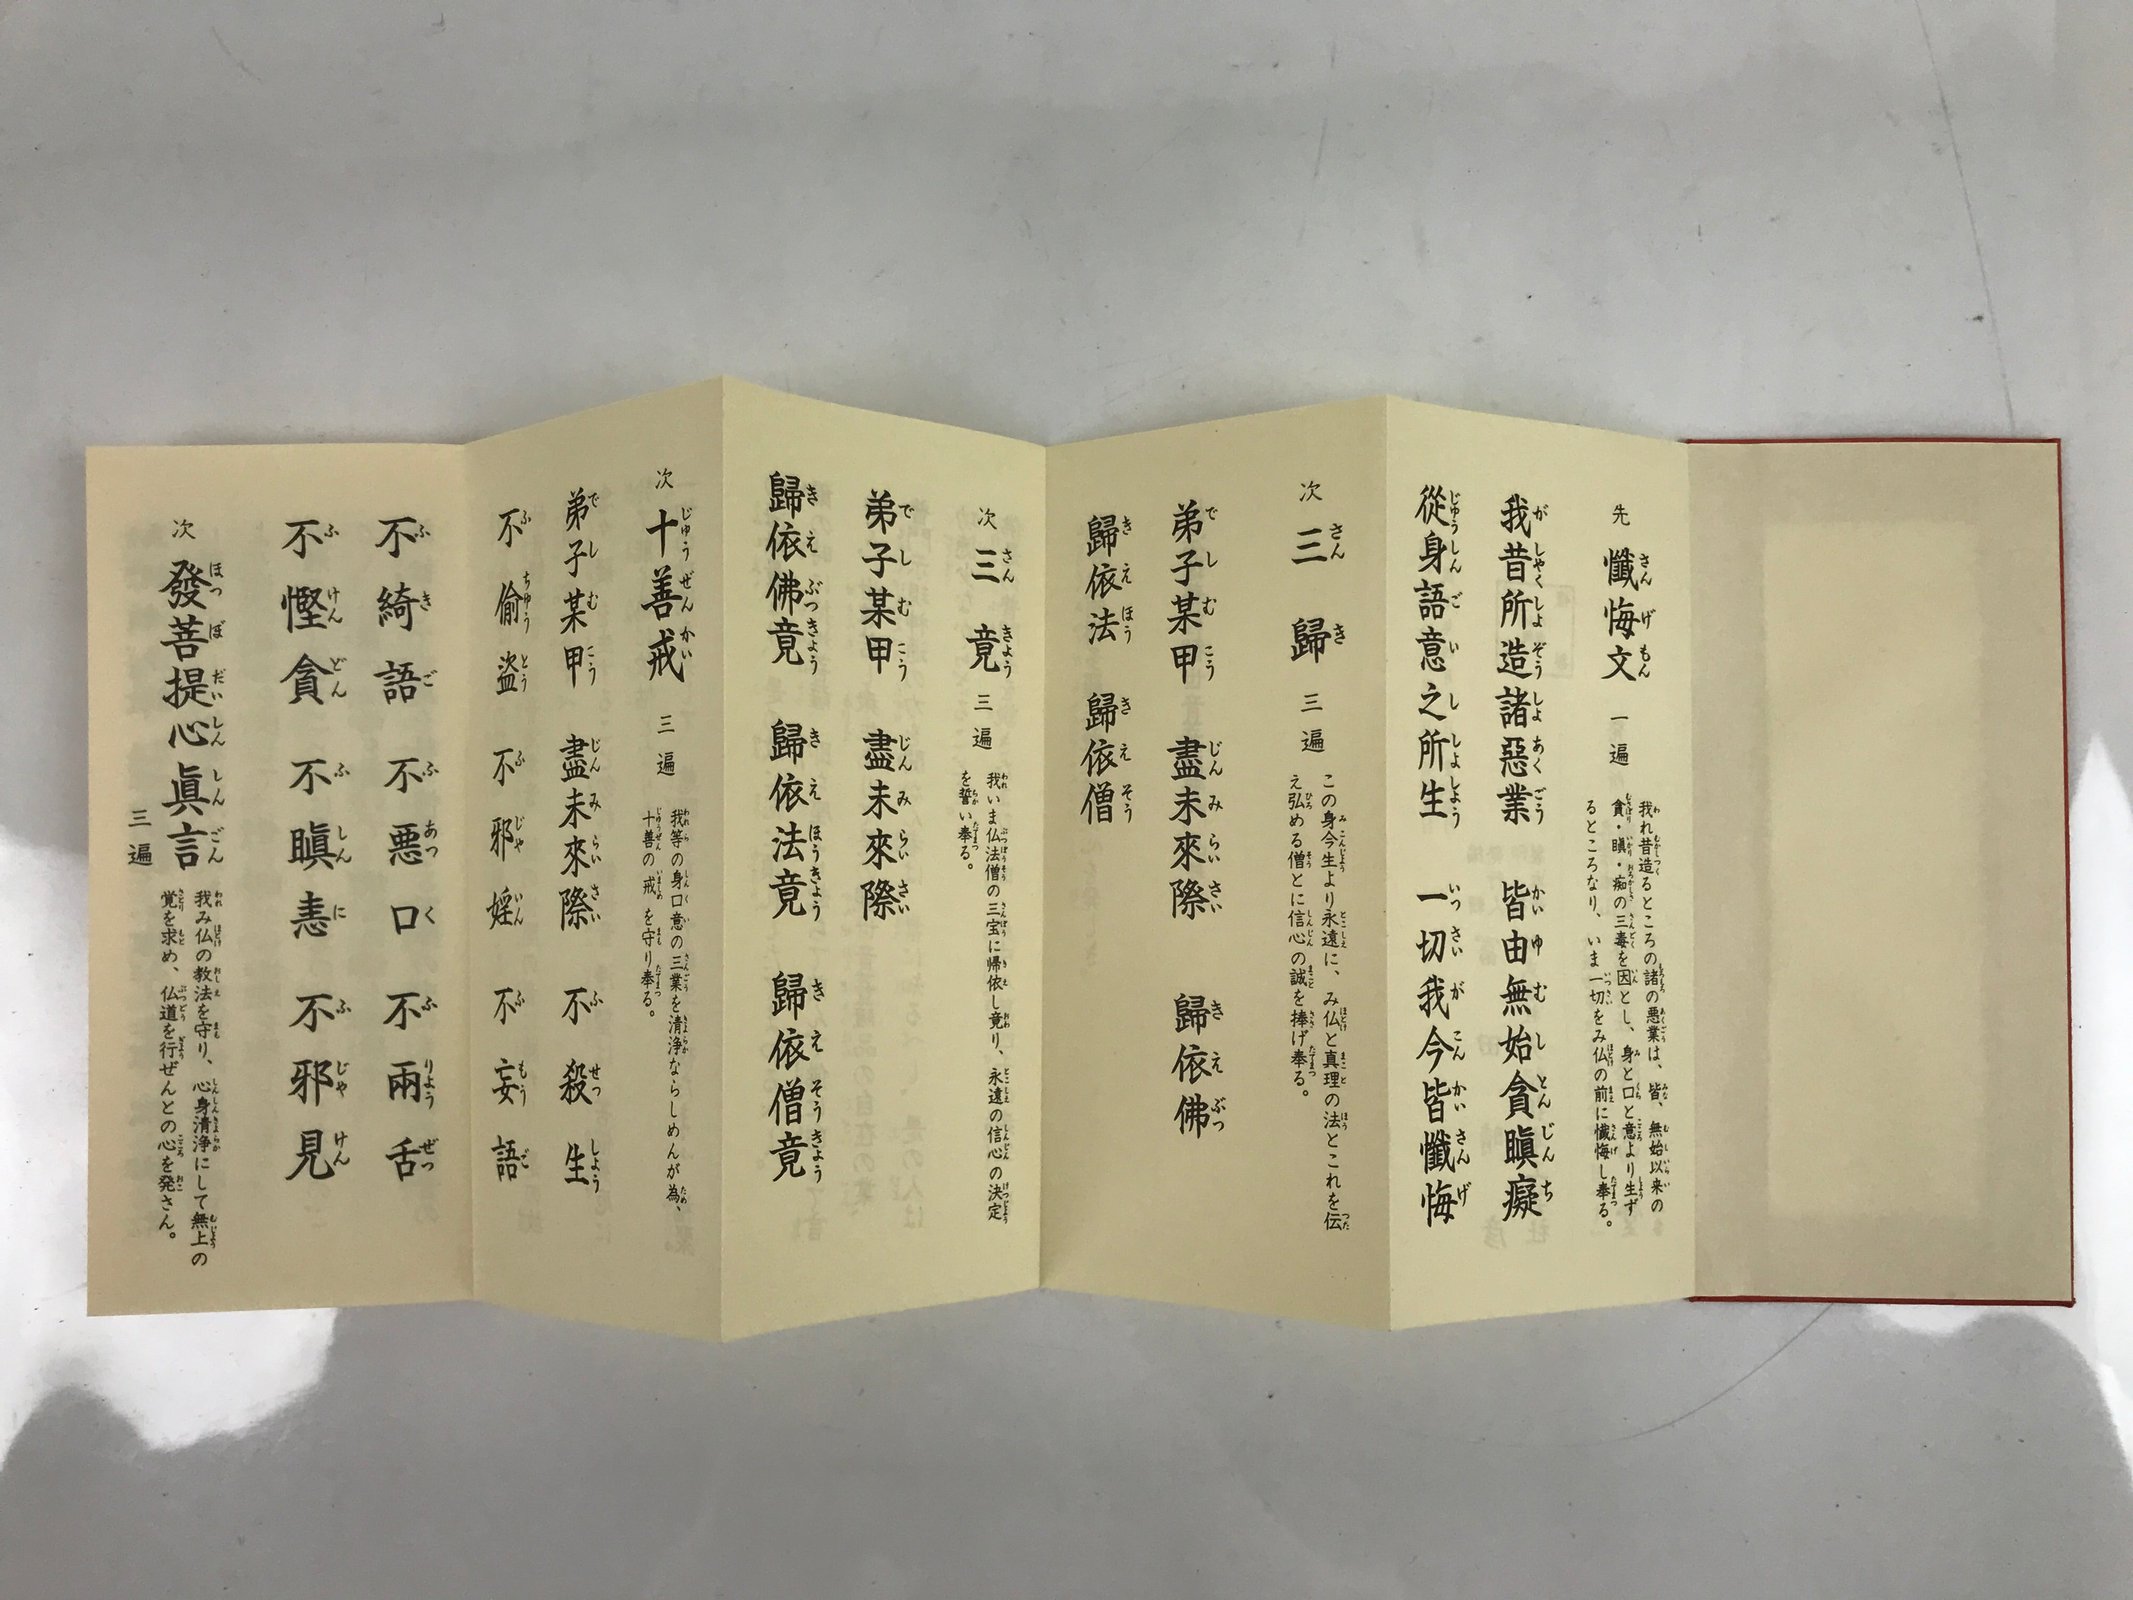 先 懺悔文 一遍
我れ昔造るところの諸の悪業は、皆、無始以来の
貪・瞋・痴の三毒を因とし、身と口と意より生ず
るところなり、いま一切をみ仏の前に懺悔し奉る。
我昔所造諸惡業 皆由無始貪瞋癡
從身語意之所生 一切我今皆懺悔
次 三歸 三遍
この身今生より永遠に、み仏と真理の法とこれを伝
え弘める僧とに信心の誠を捧げ奉る。
弟子某甲 盡未來際 歸依佛
歸依法 歸依僧
次 三竟 三遍
我いま仏法僧の三宝に帰依し竟り、永遠の信心の決定
を誓い奉る。
弟子某甲 盡未來際
歸依佛竟 歸依法竟 歸依僧竟
次 十善戒 三遍
我等の身口意の三業を清浄ならしめんが為、
十善の戒を守り奉る。
弟子某甲 盡未來際 不殺生
不偷盗 不邪婬 不妄語
不綺語 不悪口 不兩舌
不慳貪 不瞋恚 不邪見
次 發菩提心眞言 三遍
我み仏の教法を守り、心身清浄にして無上の
覚を求め、仏道を行ぜんとの心を発さん。